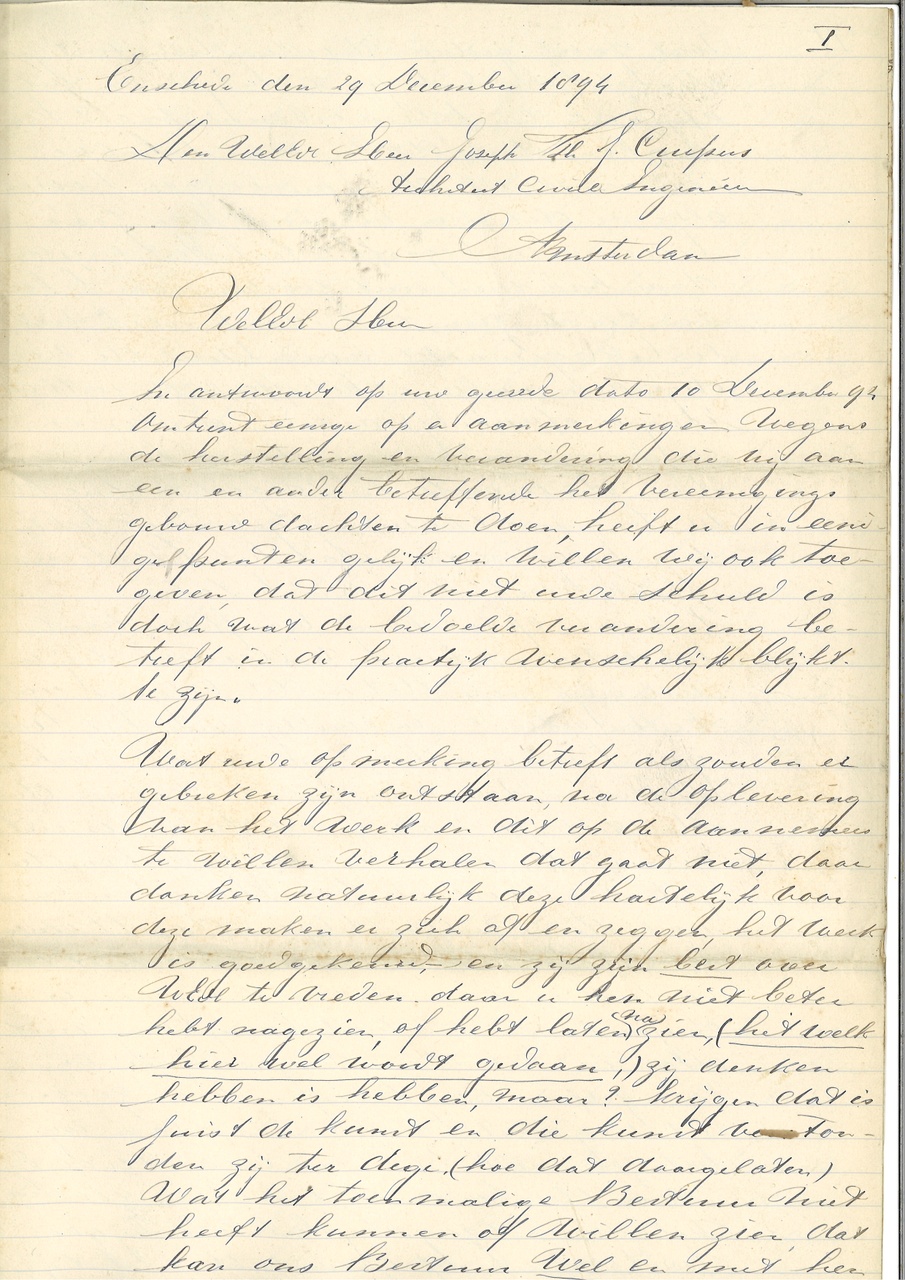 I
Enschede den 29 December 1894
Den WelEdr Heer Joseph Th. J. Cuypers
Architect Civiel Ingenieur
Amsterdam
WelEdl Heer
In antwoordt op uw geeerde dato 10 December 94
Omtrent eenige op en aanmerkingen Wegens
de herstelling en verandering die wij aan
een en ander betreffende het Vereenigings
gebouw dachten te doen, heeft u in eeni-
ge punten gelijk en willen wij ook toe-
geven, dat dit niet uwe schuld is
doch wat de bedoelde verandering be-
treft in de practijk wenschelijk blijkt
te zijn.
Wat uwe opmerking betreft als zouden er
gebreken zijn ontstaan, na de oplevering
van het Werk en dit op de Aannemers
te willen verhalen dat gaat niet, daar
danken natuurlijk deze hartelijk voor
deze maken er zich af en zeggen, het werk
is goedgekeurd, en zij zijn best over
UEdl te vreden daar u hen niet beter
hebt nagezien, of hebt laten na zien, (het welk
hier wel wordt gedaan,) zij denken
hebben is hebben, maar? krijgen dat is
juist de kunst en die kunst verston-
den zij ter dege. (hoe dat daargelaten)
Wat het toenmalige Bestuur niet
heeft kunnen of willen zien, dat
kan ons Bestuur Wel en met hen